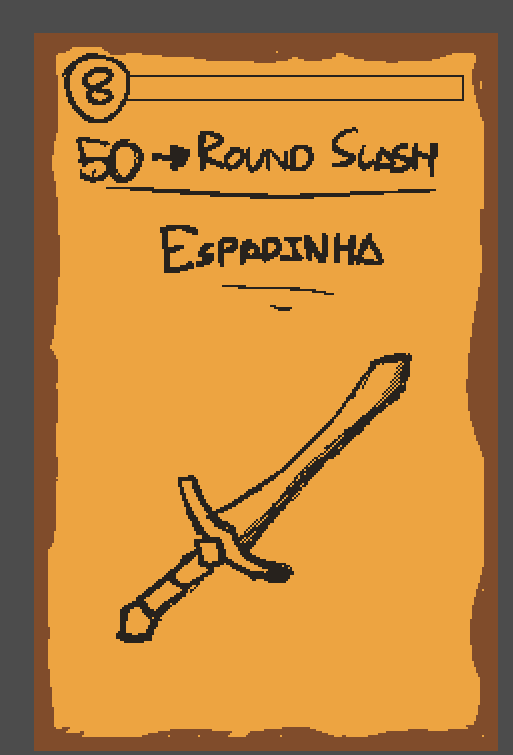 8
50 → ROUND SLASH
ESPADINHA